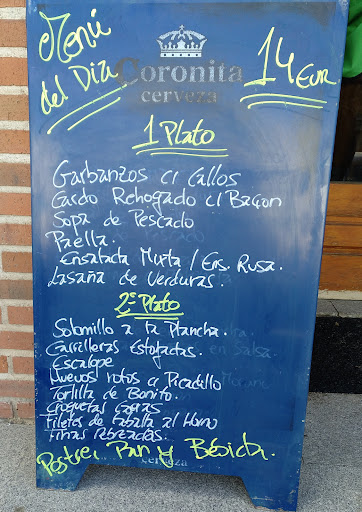 Menú
del Dia
Coronita
cerveza
14 Eur
1 Plato
Garbanzos c/ Callos
Cardo Rehogado c/ Bacon
Sopa de Pescado
Paella.
Ensalada Mixta / Ens. Rusa.
Lasaña de Verduras.
2º Plato
Solomillo a la Plancha.
Carrilleras Estofadas. en Salsa.
Escalope
Huevos rotos c/ Picadillo
Tortilla de Bonito.
Croquetas Caseras
Filetes de Babilla al Horno
Fintas Rebozadas.
Postre, Pan y Bebida.
cerveza